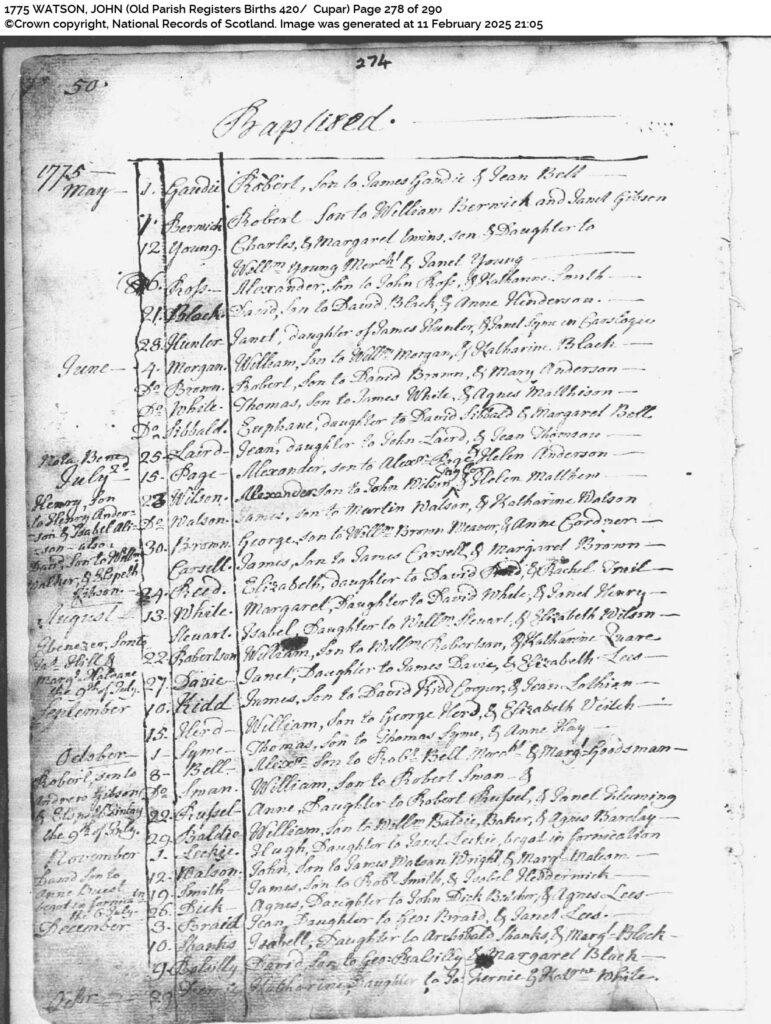 1775 WATSON, JOHN (Old Parish Registers Births 420/ Cupar) Page 278 of 290
©Crown copyright, National Records of Scotland. Image was generated at 11 February 2025 21:05
274
50.
Baptised.
1775
May 1. Gaudie Robert, Son to James Gaudie & Jean Bell
7. Berwick Robert Son to William Berwick and Janet Gibson
12 Young. Charles, & Margaret Ewins, son & Daughter to
Willm Young Mercht & Janet Young
Ross Alexander, Son to John Ross, & Katharine Smith
21. Black David, Son to David Black, & Anne Henderson.
28. Hunter Janet, daughter of James Hunter, & Janet Syme in Carslogie
June 4. Morgan. William, Son to Willm Morgan, & Katharine Black
Do Brown. Robert, Son to David Brown, & Mary Anderson
Do White. Thomas, Son to James White, & Agnes Matthison
Do Sibbald. Euphane, daughter to David Sibbald & Margaret Bell
25. Laird. Jean, daughter to John Laird, & Jean Thomson
July 15. Page Alexander, Son to Alexr Page & Helen Anderson
23 Wilson. Alexander son to John Wilson & Helen Matthew
Do Watson. James, Son to Martin Watson, & Katharine Watson
30. Brown George, Son to Willm Brown Weaver, & Anne Cordner
Carsell. James, Son to James Carsell, & Margaret Brown
24. Reed. Elizabeth, Daughter to David Reed, & Rachel Trail
August 13. White. Margaret, Daughter to David White, & Janet Henry
Steuart. Isabel, Daughter to Willm Steuart, & Elizabeth Wilson
22. Robertson William, Son to Willm Robertson, & Katharine Quare
27. Davie Janet, Daughter to James Davie, & Elizabeth Lees
September 10. Kidd James, Son to David Kidd Cooper, & Jean Lothian
15. Herd William, Son to George Herd, & Elizabeth Veitch
October 1 Syme Thomas, Son to Thomas Syme, & Anne Hay
8. Bell Alexr Son to Robt Bell Mercht & Margt Goodsman
Do Swan William, Son to Robert Swan &
22. Russel Anne, Daughter to Robert Russel, & Janet Fleming
29. Baldie William, Son to Willm Baldie, Baker, & Agnes Barclay
November 1. Leckie Hugh, Daughter to Janet Leckie, begat in fornication
12. Watson. John, Son to James Watson Wright, & Margt Watson
19. Smith James, Son to Robt Smith, & Isobel Hedderwick
26. Dick Agnes, Daughter to John Dick Butcher, & Agnes Lees
December 3. Braid Jean, Daughter to Geo: Braid, & Janet Lees.
10. Shanks Isabell, Daughter to Archibald Shanks, & Margt Black
9. Balsilly David, Son to Geo: Balsilly & Margaret Black
Katharine Daughter to Jo: Fernie & White.
Nota Bene
Henry, Son
to Henry Ander-
son & Isabel
son also
David, Son to Willm
Walker, & Elspeth
Gibson
Ebenezer, Son to
Hill &
Margt
the 9th of July
Robert, son to
Andrew Gibson
& Elspet Finlay
the 9th of July.
David Son to
Anne
begat in fornica
the 6 July